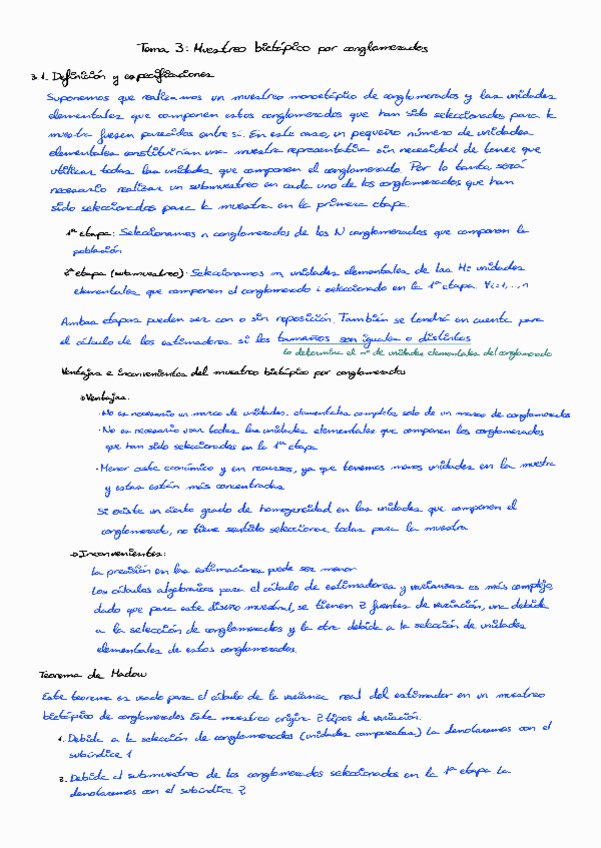 Tema 3: Muestreo bietápico por conglomerados
3.1. Definición y especificaciones
Suponemos que realizamos un muestreo monoetápico de conglomerados y las unidades
elementales que componen estos conglomerados que han sido seleccionados para la
muestra fuesen parecidas entre sí. En este caso, un pequeño número de unidades
elementales constituirían una muestra representativa sin necesidad de tener que
utilizar todas las unidades que componen el conglomerado. Por lo tanto, será
necesario realizar un submuestreo en cada uno de los conglomerados que han
sido seleccionados para la muestra en la primera etapa.
1ª etapa: Seleccionamos n conglomerados de los N conglomerados que componen la
población
2ª etapa (submuestreo): Seleccionamos mi unidades elementales de las Mi unidades
elementales que componen el conglomerado i seleccionado en la 1ª etapa. ∀i=1,...,n
Ambas etapas pueden ser con o sin reposición. También se tendrá en cuenta para
el cálculo de los estimadores si los tamaños son iguales o distintos
lo determina el nº de unidades elementales del conglomerado
Ventajas e inconvenientes del muestreo bietápico por conglomerados
Ventajas:
· No es necesario un marco de unidades elementales completo, solo de un marco de conglomerados
· No es necesario usar todas las unidades elementales que componen los conglomerados
que han sido seleccionados en la 1ª etapa
· Menor coste económico y en recursos, ya que tenemos menos unidades en la muestra
y estas están más concentradas
Si existe un cierto grado de homogeneidad en las unidades que componen el
conglomerado, no tiene sentido seleccionar todas para la muestra
Inconvenientes:
La precisión en las estimaciones puede ser menor
Los cálculos algebraicos para el cálculo de estimadores y varianzas es más complejo,
dado que para este diseño muestral, se tienen 2 fuentes de variación, una debida
a la selección de conglomerados y la otra debida a la selección de unidades
elementales de estos conglomerados.
Teorema de Madow
Este teorema es usado para el cálculo de la varianza real del estimador en un muestreo
bietápico de conglomerados. Este muestreo origina 2 tipos de variación:
1. Debida a la selección de conglomerados (unidades compuestas) La denotaremos con el
subíndice 1
2. Debida al submuestreo de los conglomerados seleccionados en la 1ª etapa. La
denotaremos con el subíndice 2